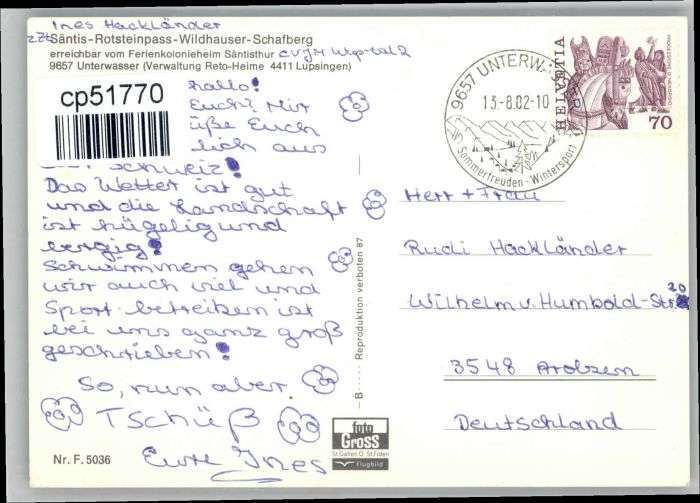 Ines Hackländer
z.Zt.
Säntis-Rotsteinpass-Wildhauser-Schafberg
erreichbar vom Ferienkolonieheim Säntisthur CVJM Wuptal 2
9657 Unterwasser (Verwaltung Reto-Heime 4411 Lupsingen)
cp51770
Hallo!
Euch? Mir
üße Euch
lich aus
Schweiz!
Das Wetter ist gut
und die Landschaft
ist hügelig und
bergig!
Schwimmen gehen
wir auch viel und
Sport betreiben ist
bei uns ganz groß
geschrieben!
So, nun aber
Tschüß
Eure Ines
Nr. F. 5036
B
Reproduktion verboten 87
foto
Gross
St. Gallen O St. Fiden
flugbild
9657 UNTERWASSER
13-8.82-10
Sommerfreuden - Wintersport
HELVETIA
70
Herr + Frau
Rudi Hackländer
Wilhelm v. Humbold-Str. 20
3548 Arolsen
Deutschland